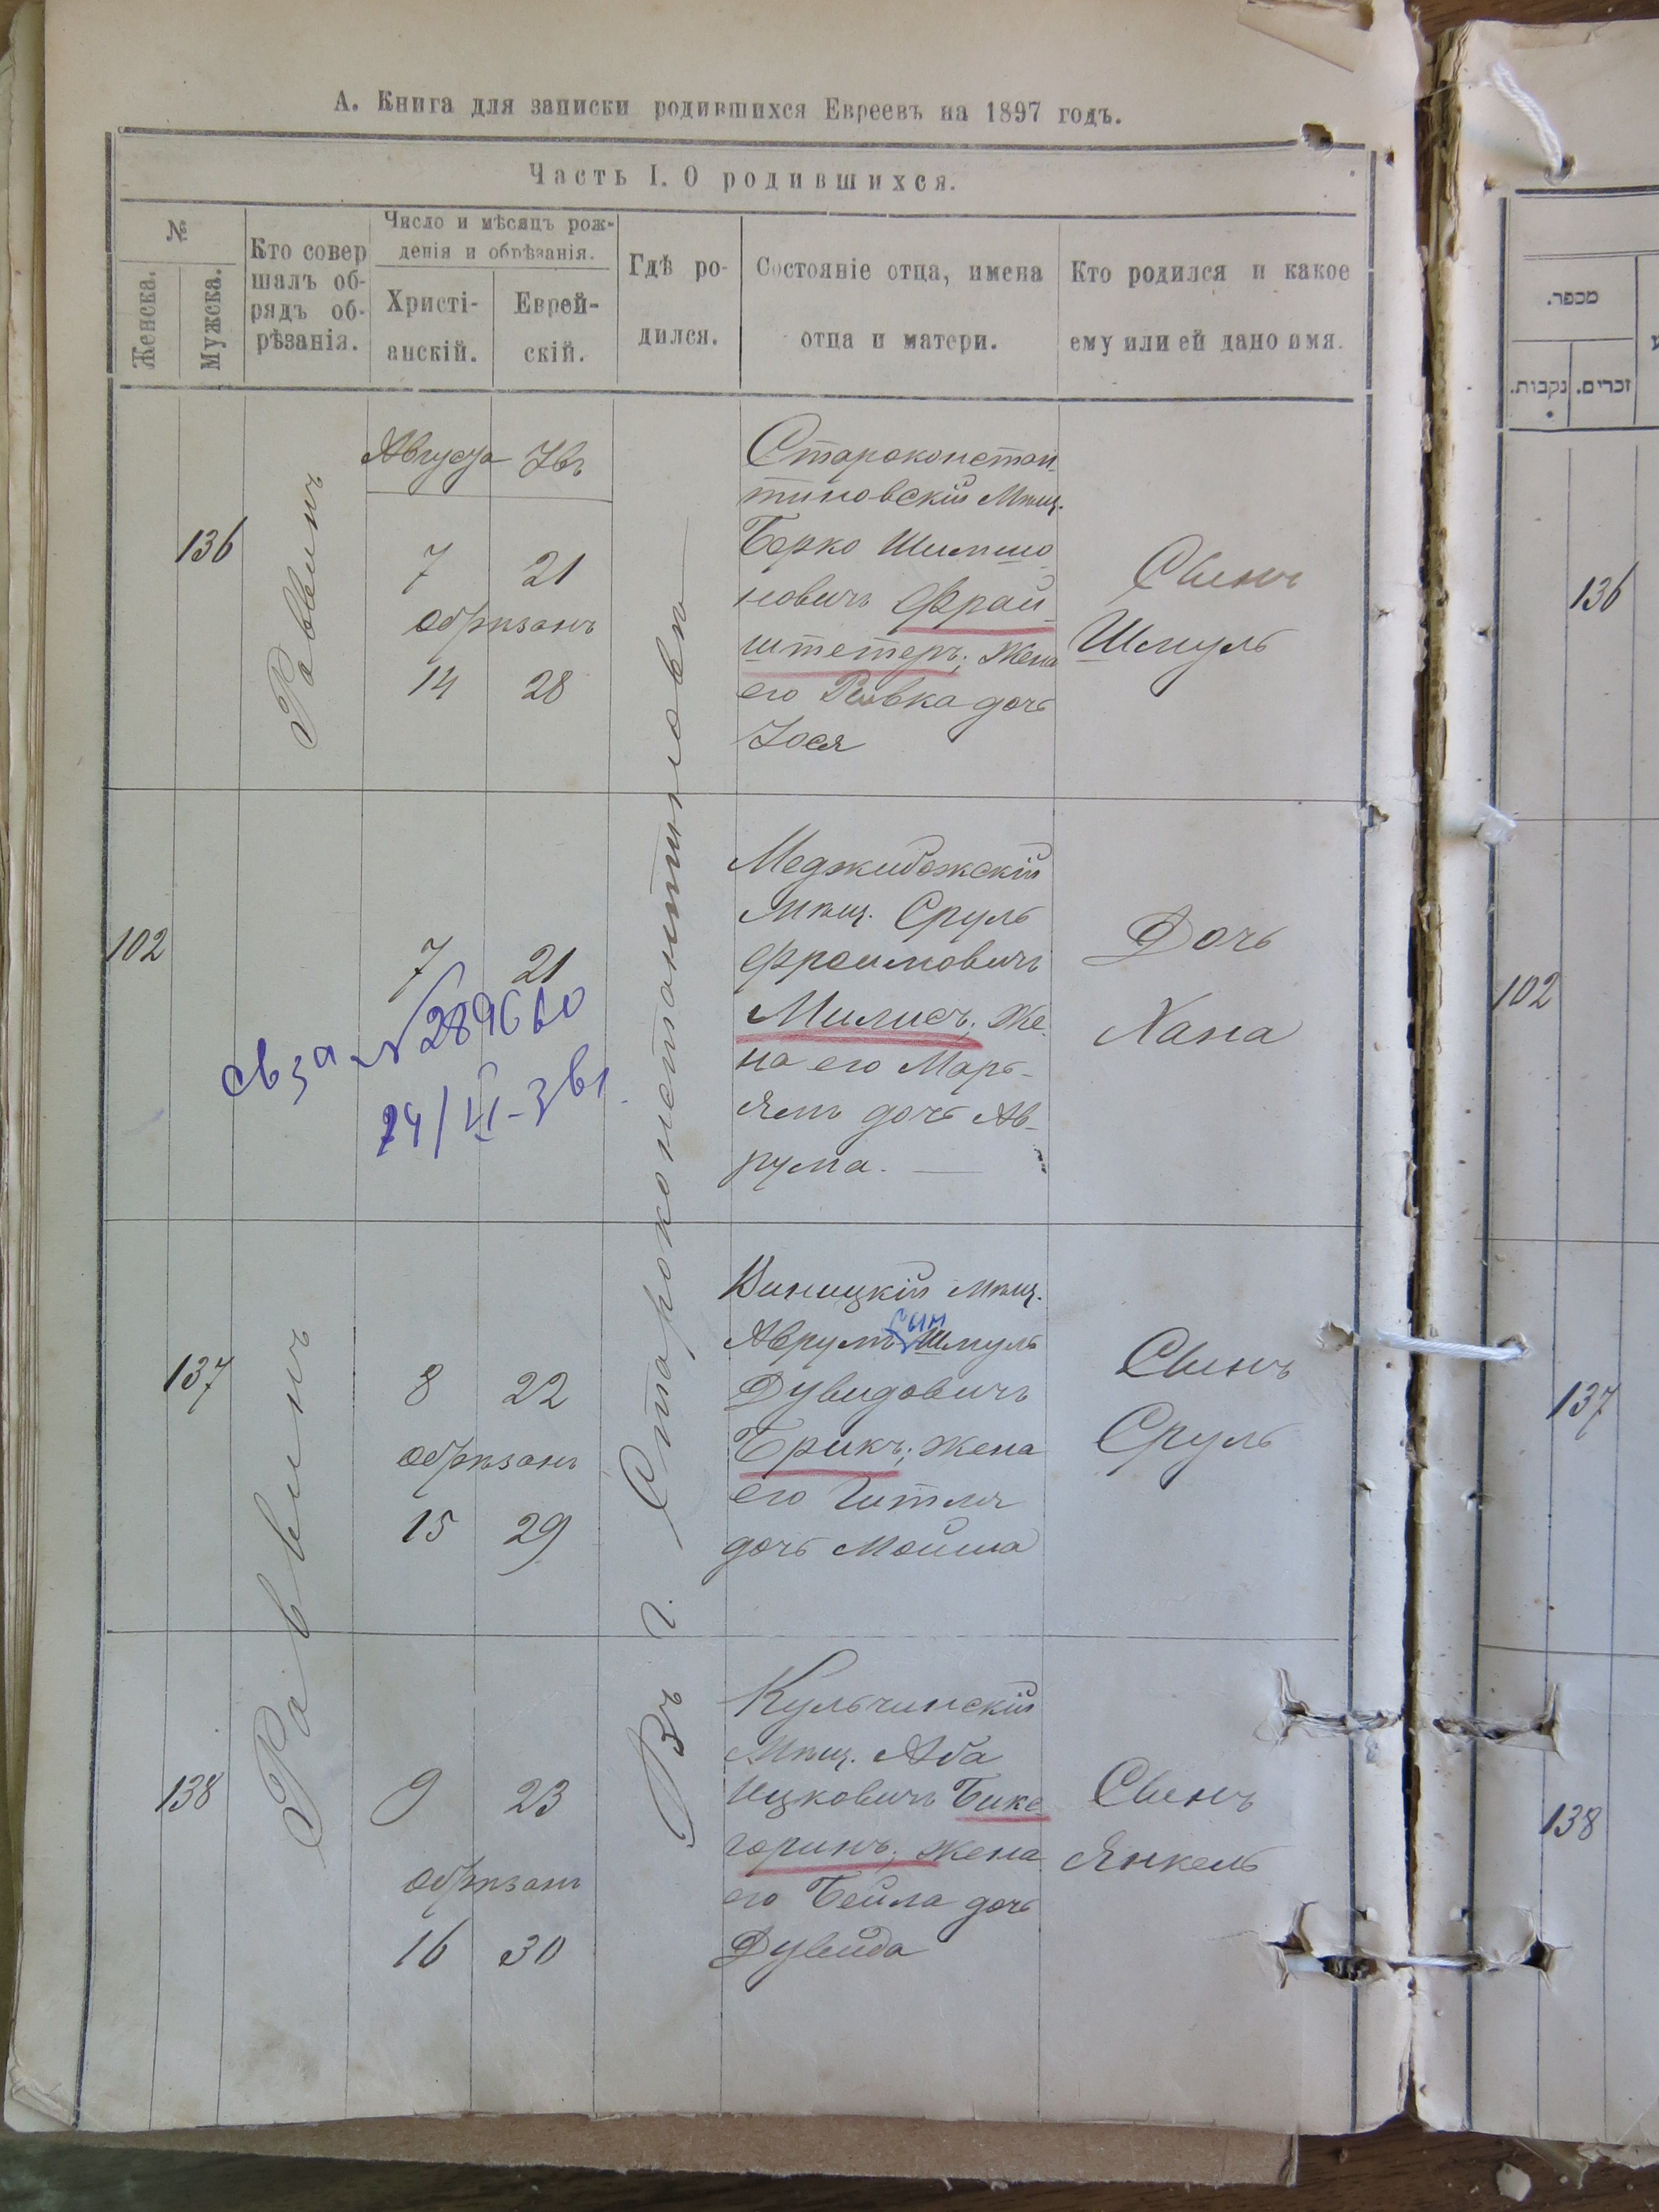 А. Книга для записки родившихся Евреевъ на 1897 годъ.
Часть I. О родившихся.
№
Женска.
Мужска.
Кто совер
шалъ об-
рядъ об-
рѣзанія.
Число и мѣсяцъ рож-
денія и обрѣзанія.
Христі-
анскій.
Еврей-
скій.
Гдѣ ро-
дился.
Состояніе отца, имена
отца и матери.
Кто родился и какое
ему или ей дано имя.
136
Раввинъ
Августа
7 21
обрѣзанъ
14 28
Въ г. Староконстантиновѣ
Староконстан
тиновскій Мѣщ.
Берко Шимшо
новичъ Фрай
штетеръ; жена
его Ривка дочь
Іося
Сынъ
Шмуль
102
7 21
24/VI-
Меджибожскій
Мѣщ. Сруль
Фроимовичъ
Милисъ; же
на его Марь-
ямъ дочь Ав-
рума.
Дочь
Хана
137
Раввинъ
8 22
обрѣзанъ
15 29
Виницкій мѣщ.
сын
Аврумъ Шмуль
Дувидовичъ
Брикъ; жена
его Гитля
дочь Мойша
Сынъ
Сруль
138
9 23
обрѣзанъ
16 30
Кульчинскій
Мѣщ. Аба
Ицковичъ Бикс
горинъ; жена
его Бейла дочь
Дувида
Сынъ
Янкель
מכפר.
זכרים.
נקבות.
136
102
137
138